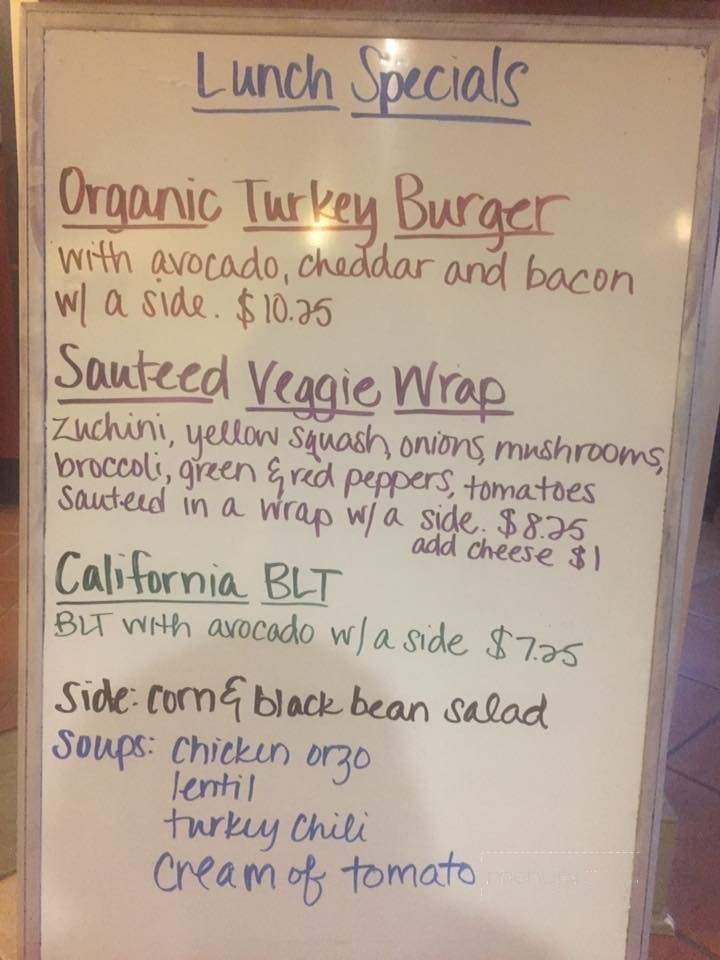 Lunch Specials
Organic Turkey Burger
with avocado, cheddar and bacon
w/ a side. $10.25
Sauteed Veggie Wrap
Zuchini, yellow squash, onions, mushrooms,
broccoli, green & red peppers, tomatoes
sauteed in a wrap w/ a side. $8.25
add cheese $1
California BLT
BLT with avocado w/ a side $7.25
Side: corn & black bean salad
Soups: chicken orzo
lentil
turkey chili
Cream of tomato